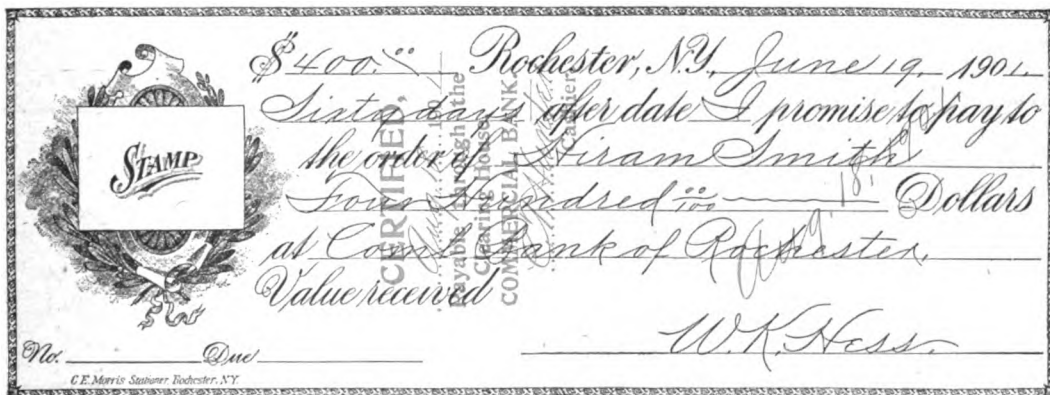 $400.00 Rochester, N.Y., June 19 1901.
Sixty days after date I promise to pay to
the order of Hiram Smith
Four Hundred 00/100 Dollars
at Coml. Bank of Rochester.
Value received
W. K. Hess.
No. Due
C.E. Morris Stationer, Rochester, N.Y.
STAMP
CERTIFIED,
Payable through the
Clearing House.
COMMERCIAL BANK.
Cashier.
Aug. 18,